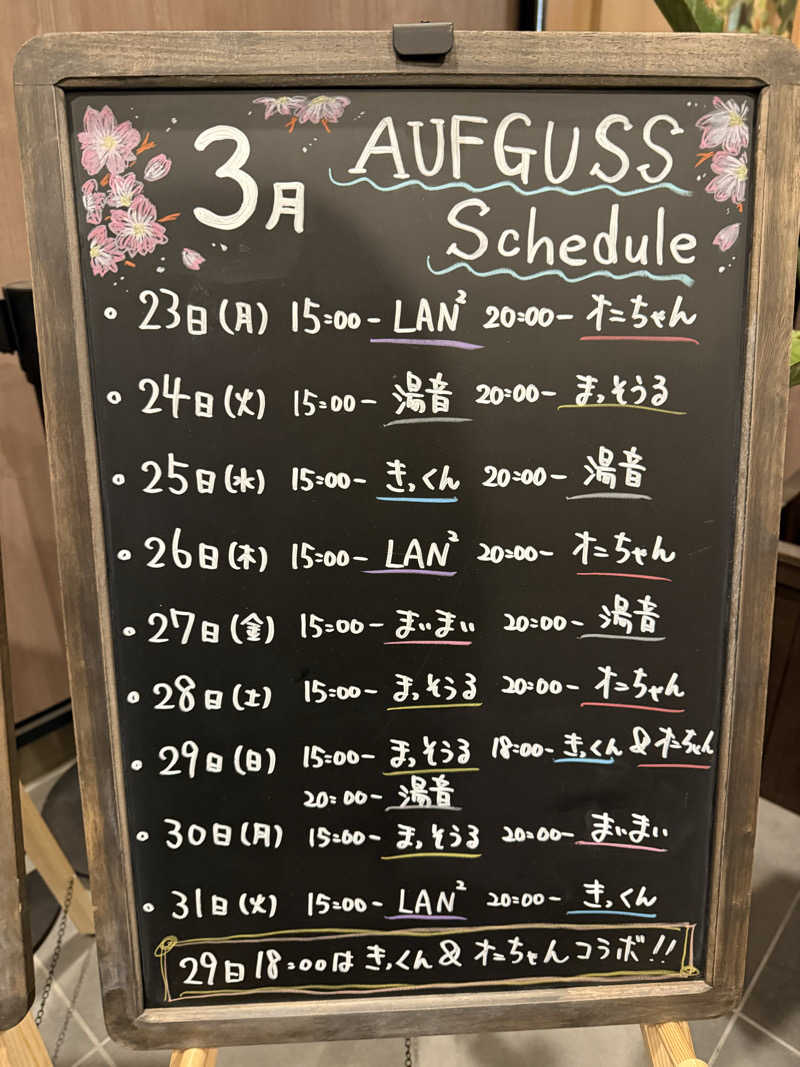 3月 AUFGUSS
Schedule
• 23日(月) 15:00- LAN² 20:00- オニちゃん
• 24日(火) 15:00- 湯音 20:00- まっそうる
• 25日(水) 15:00- きっくん 20:00- 湯音
• 26日(木) 15:00- LAN² 20:00- オニちゃん
• 27日(金) 15:00- まぃまぃ 20:00- 湯音
• 28日(土) 15:00- まっそうる 20:00- オニちゃん
• 29日(日) 15:00- まっそうる 18:00- きっくん & オニちゃん
20:00- 湯音
• 30日(月) 15:00- まっそうる 20:00- まぃまぃ
• 31日(火) 15:00- LAN² 20:00- きっくん
29日 18:00は きっくん & オニちゃん コラボ!!